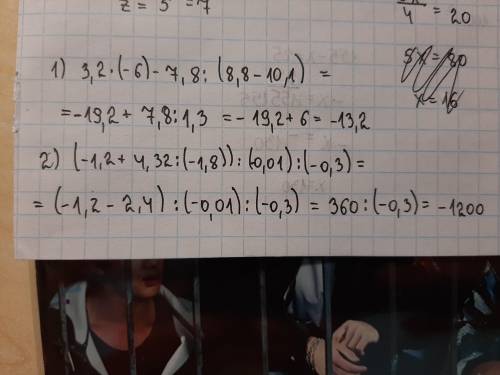 z = 5 = 7
4 = 20
5x = 80
x = 16
1) 3,2·(-6)-7,8:(8,8-10,1) =
=-19,2+7,8:1,3 =-19,2+6=-13,2
2) (-1,2+4,32:(-1,8)):(0,01):(-0,3)=
=(-1,2-2,4):(-0,01):(-0,3)=360:(-0,3)=-1200